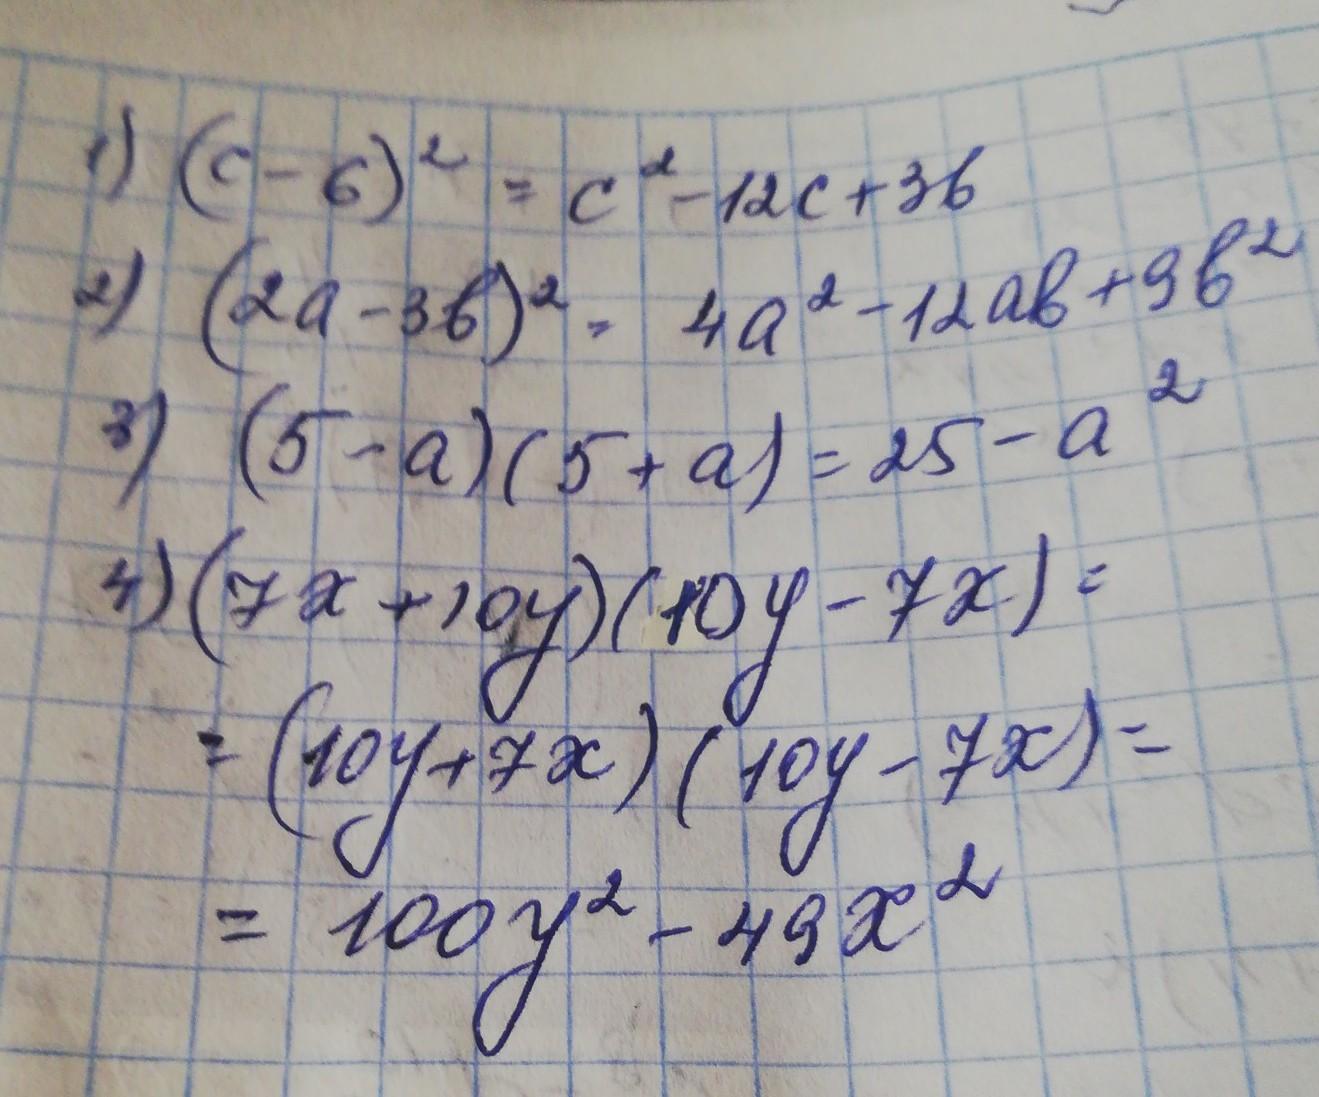 1) (c - 6)² = c² - 12c + 36
2) (2a - 3b)² = 4a² - 12ab + 9b²
3) (5 - a)(5 + a) = 25 - a²
4) (7x + 10y)(10y - 7x) =
= (10y + 7x)(10y - 7x) =
= 100y² - 49x²